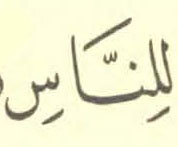 لِلنَّاسِ